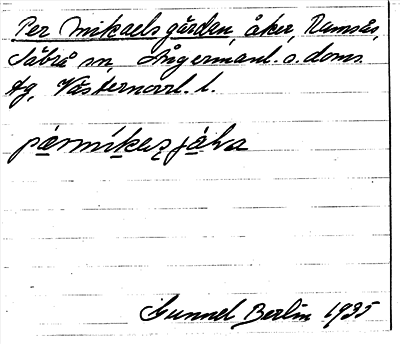 Per Mikaelsgården, åker, Ramsås,
Säbrå sn, Ångermanl. s. doms.
tg, Västernorrl. l.
Gunnel Berlin 1935